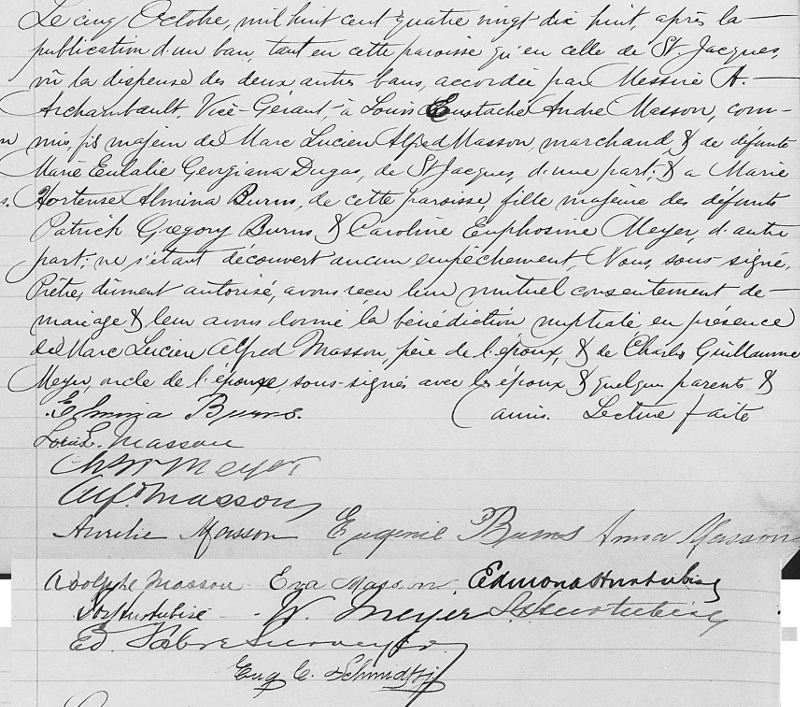 Le cinq Octobre, mil huit cent quatre vingt dix huit, après la
publication d'un ban, tant en cette paroisse qu'en celle de St. Jacques,
vû la dispense des deux autres bans, accordée par Messire A.
Archambault, Vice-Gérant, à Louis Eustache André Masson, com-
mis, fils majeur de Marc Lucien Alfred Masson marchand, & de défunte
Marie Eulalie Georgiana Dugas, de St Jacques, d'une part; & a Marie
Hortense Almina Burns, de cette paroisse, fille majeure des défunts
Patrick Gregory Burns & Caroline Euphosine Meyer, d'autre
part; ne s'étant découvert aucun empêchement, Nous, sous-signé,
Prêtre, dûment autorisé, avons reçu leur mutuel consentement de
mariage & leur avons donné la bénédiction nuptiale en présence
de Marc Lucien Alfred Masson, père de l'époux, & de Charles Guillaume
Meyer, oncle de l'épouse, sous-signés avec les époux & quelques parents &
amis. Lecture faite
Elmina Burns.
Louis E. Masson
Ch Wm Meyer
Alfd Masson
Aurelie Masson Eugenie Burns Anna Masson
Adolphe Masson Eva Masson. Edmond Hurtubise
Hurtubise W. Meyer Hurtubise
Ed. Fabre Surveyer
Eug C. Schmidt